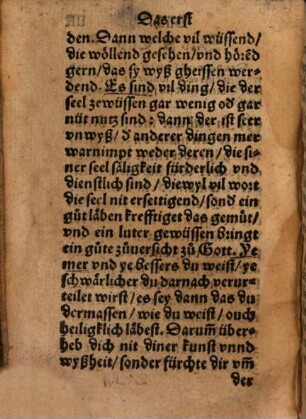 Das erst
den. Dann welche vil wüssend/
die wöllend gesehen/vnd hörẽd
gern/das sy wyß gheissen wer-
dend. Es sind vil ding/die der
seel zewüssen gar wenig od gar
nüt nutz sind: dann der ist seer
vnwyß/ d anderer dingen mer
warnimpt weder deren/die si-
ner seel säligkeit fürderlich vnd
dienstlich sind/diewyl vil wort
die seel nit ersettigend/sond ein
gůt läben krefftiget das gemüt/
vnd ein luter gewüssen bringt
ein gůte zůuersicht zů Gott. Ye
mer vnd ye bessers du weist/ye
schwärlicher du darnach verur-
teilet wirst/es sey dann das du
dermassen/wie du weist/ouch
heiligklich läbest. Darum̃ über-
heb dich nit diner kunst vnnd
wyßheit/sonder fürchte dir vm̃
der